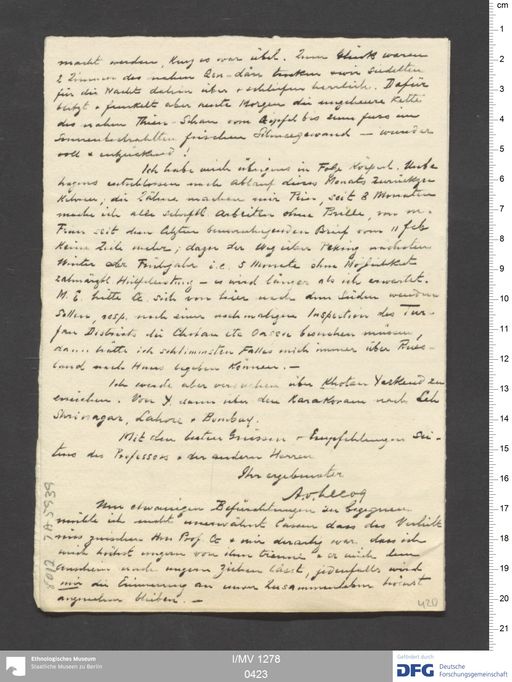 macht werden, kurz es war übel. Zum Glück waren
2 Zimmer des nahen trocken wir siedelten
für die Nacht dahin über + schliefen herrlich. Dafür
blitzt + funkelt aber heute Morgen die ungeheure Kette
des nahen Thien-Schan vom Gipfel bis zum Fuss im
Sonnenbestrahlten frischen Schneegewand — wunder
voll + entzückend!
Ich habe mich übrigens in Folge körperl. Unbe
hagens entschlossen nach Ablauf dieses Monats zurückzu
kehren; die Zähne machen mir Pein, seit 8 Monaten
mache ich alle schriftl. Arbeiten ohne Brille, von m.
Frau seit dem letzten beunruhigenden Brief vom 11 Feb
keine Zeile mehr; dazu der Weg über Peking nächsten
Winter oder Frühjahr i.e. 5 Monate ohne Möglichkeit
zahnärztl Hülfeleistung — es wird länger als ich erwartet.
M. E. hätte G. sich von hier nach dem Süden wenden
sollen, resp. nach einer nochmaligen Inspection des Tur-
fan Districts die Khotan etc Oasen besuchen müssen,
dann hätte ich schlimmsten Falles mich immer über Russ-
land nach Haus begeben können. —
Ich werde aber versuchen über Khotan Yarkend zu
erreichen. Von Y dann über den Karakoram nach Leh
Shrinagar, Lahore + Bombay.
Mit den besten Grüssen + Empfehlungen Sei-
tens des Professors + der anderen Herren
Ihr ergebenster
A. v. Lecoq
Um etwaigen Befürchtungen zu begegnen
möchte ich nicht unerwähnt lassen dass das Verhält
niss zwischen Hrn Prof G + mir derartig war dass ich
mich höchst ungern von ihm trenne + er mich dem
Anschein nach ungern ziehen lässt, jedenfalls wird
mir die Erinnerung an unser Zusammenleben höchst
angenehm bleiben. —
420
8012 TA 5939
cm
1
2
3
4
5
6
7
8
9
10
11
12
13
14
15
16
17
18
19
20
21
Ethnologisches Museum
Staatliche Museen zu Berlin
I/MV 1278
0423
Gefördert durch
DFG Deutsche
Forschungsgemeinschaft